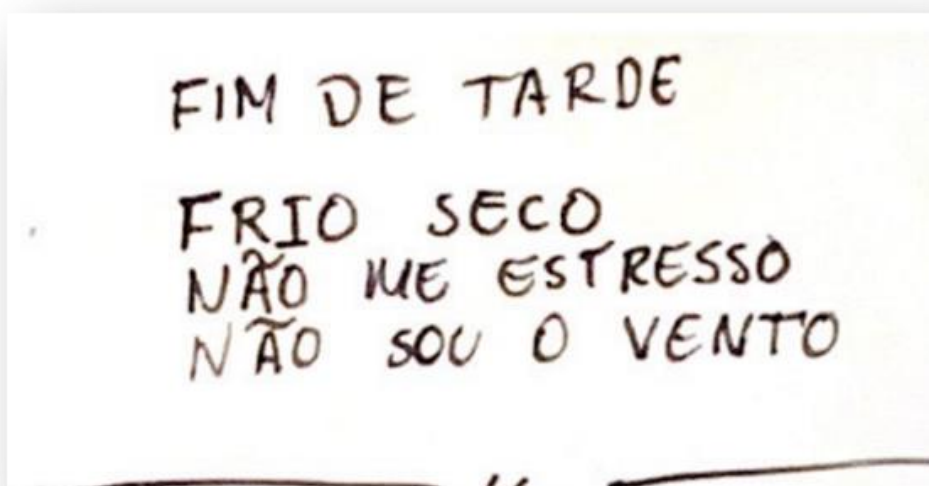 FIM DE TARDE
FRIO SECO
NÃO ME ESTRESSO
NÃO SOU O VENTO